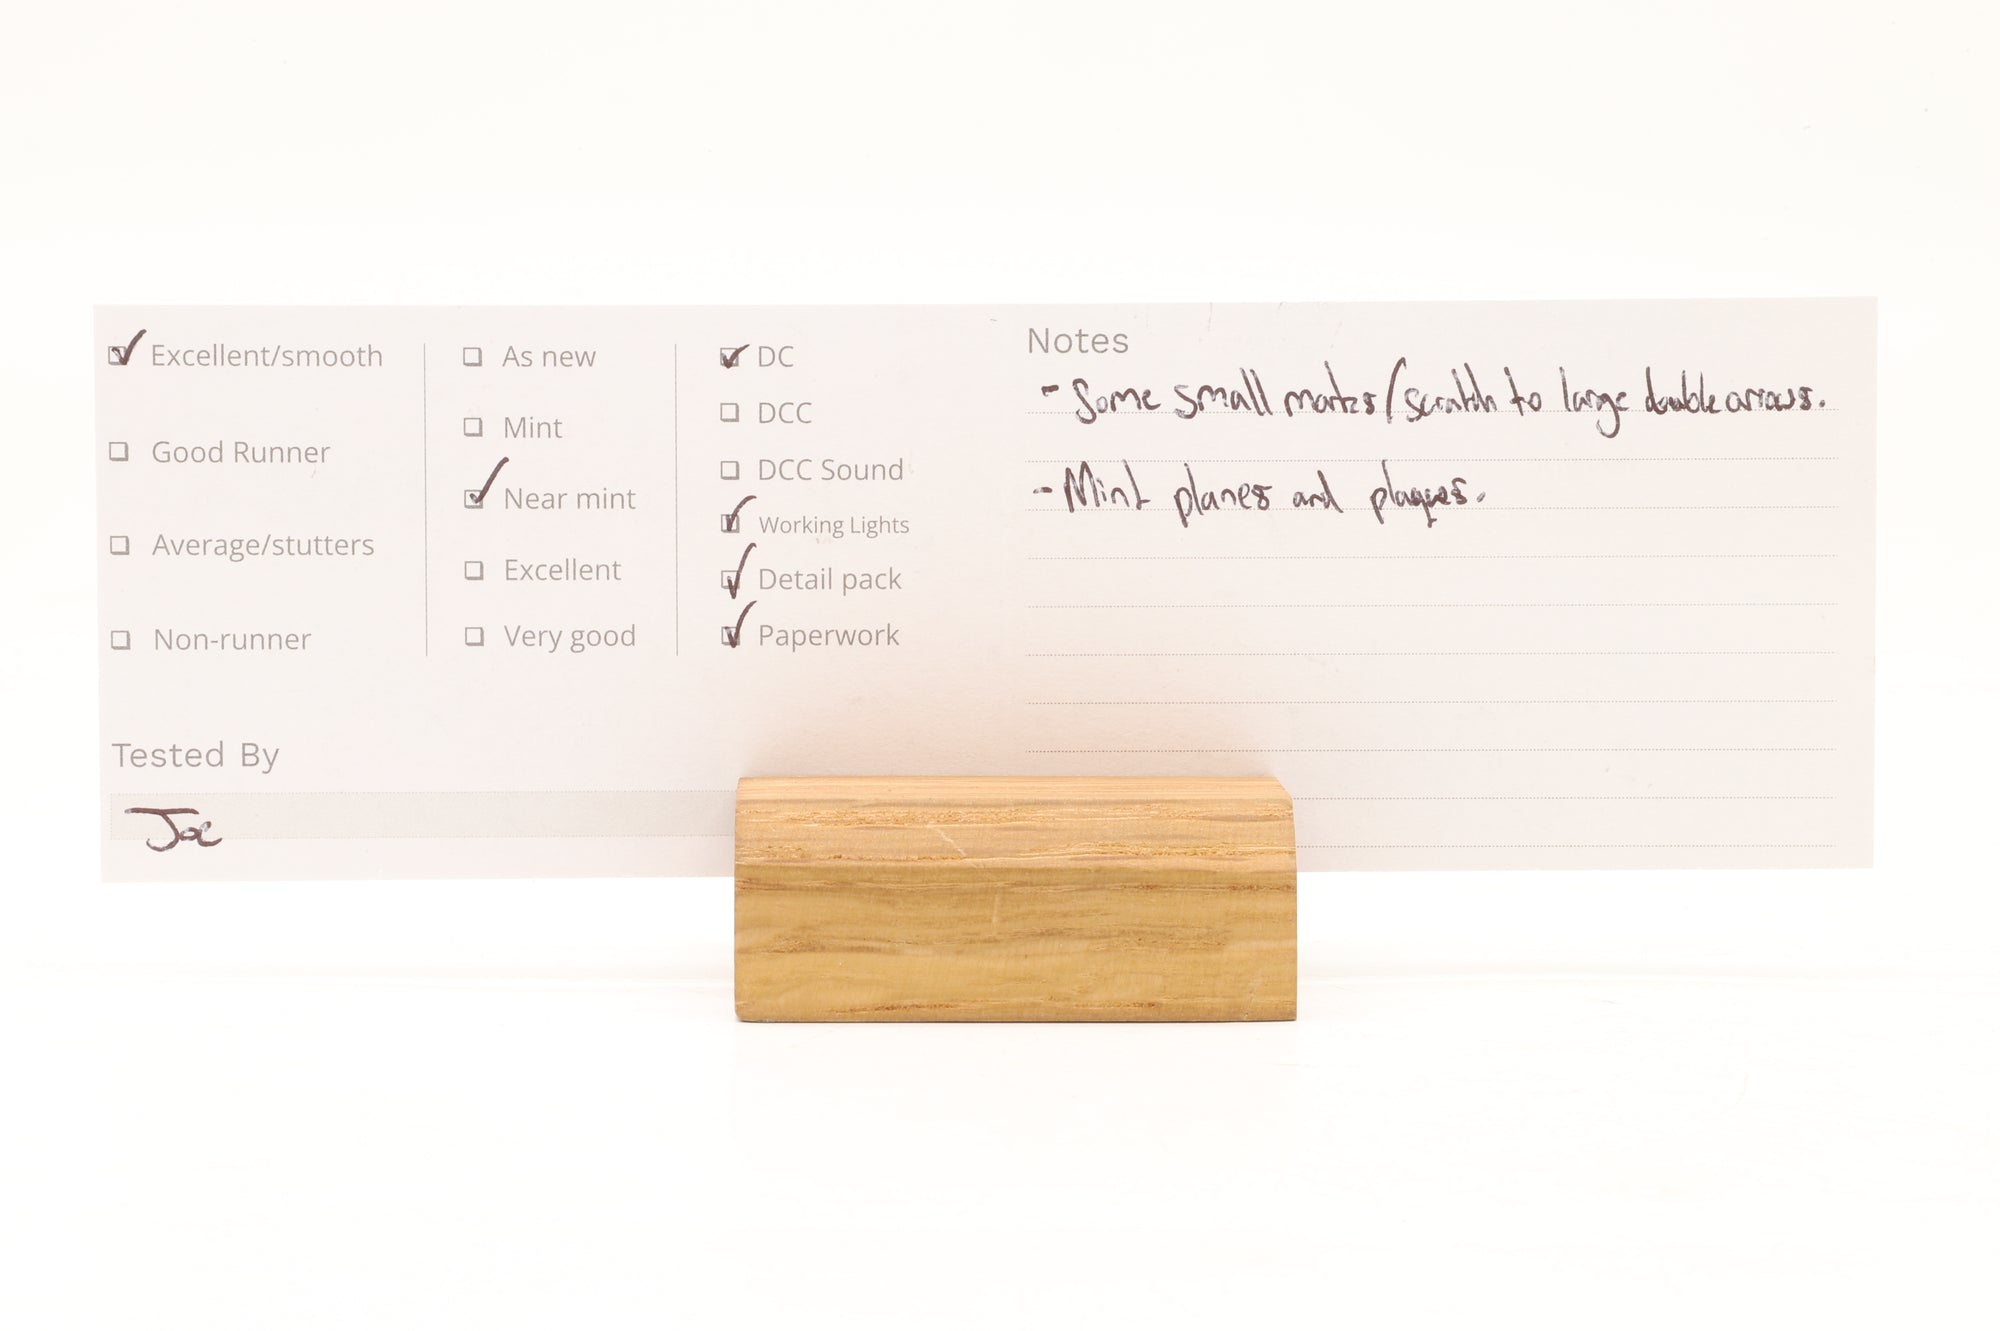 Excellent/smooth
Good Runner
Average/stutters
Non-runner
As new
Mint
Near mint
Excellent
Very good
DC
DCC
DCC Sound
Working Lights
Detail pack
Paperwork
Tested By
Joe
Notes
- Some small marks/scratch to large double arrows.
- Mint planes and plaques.